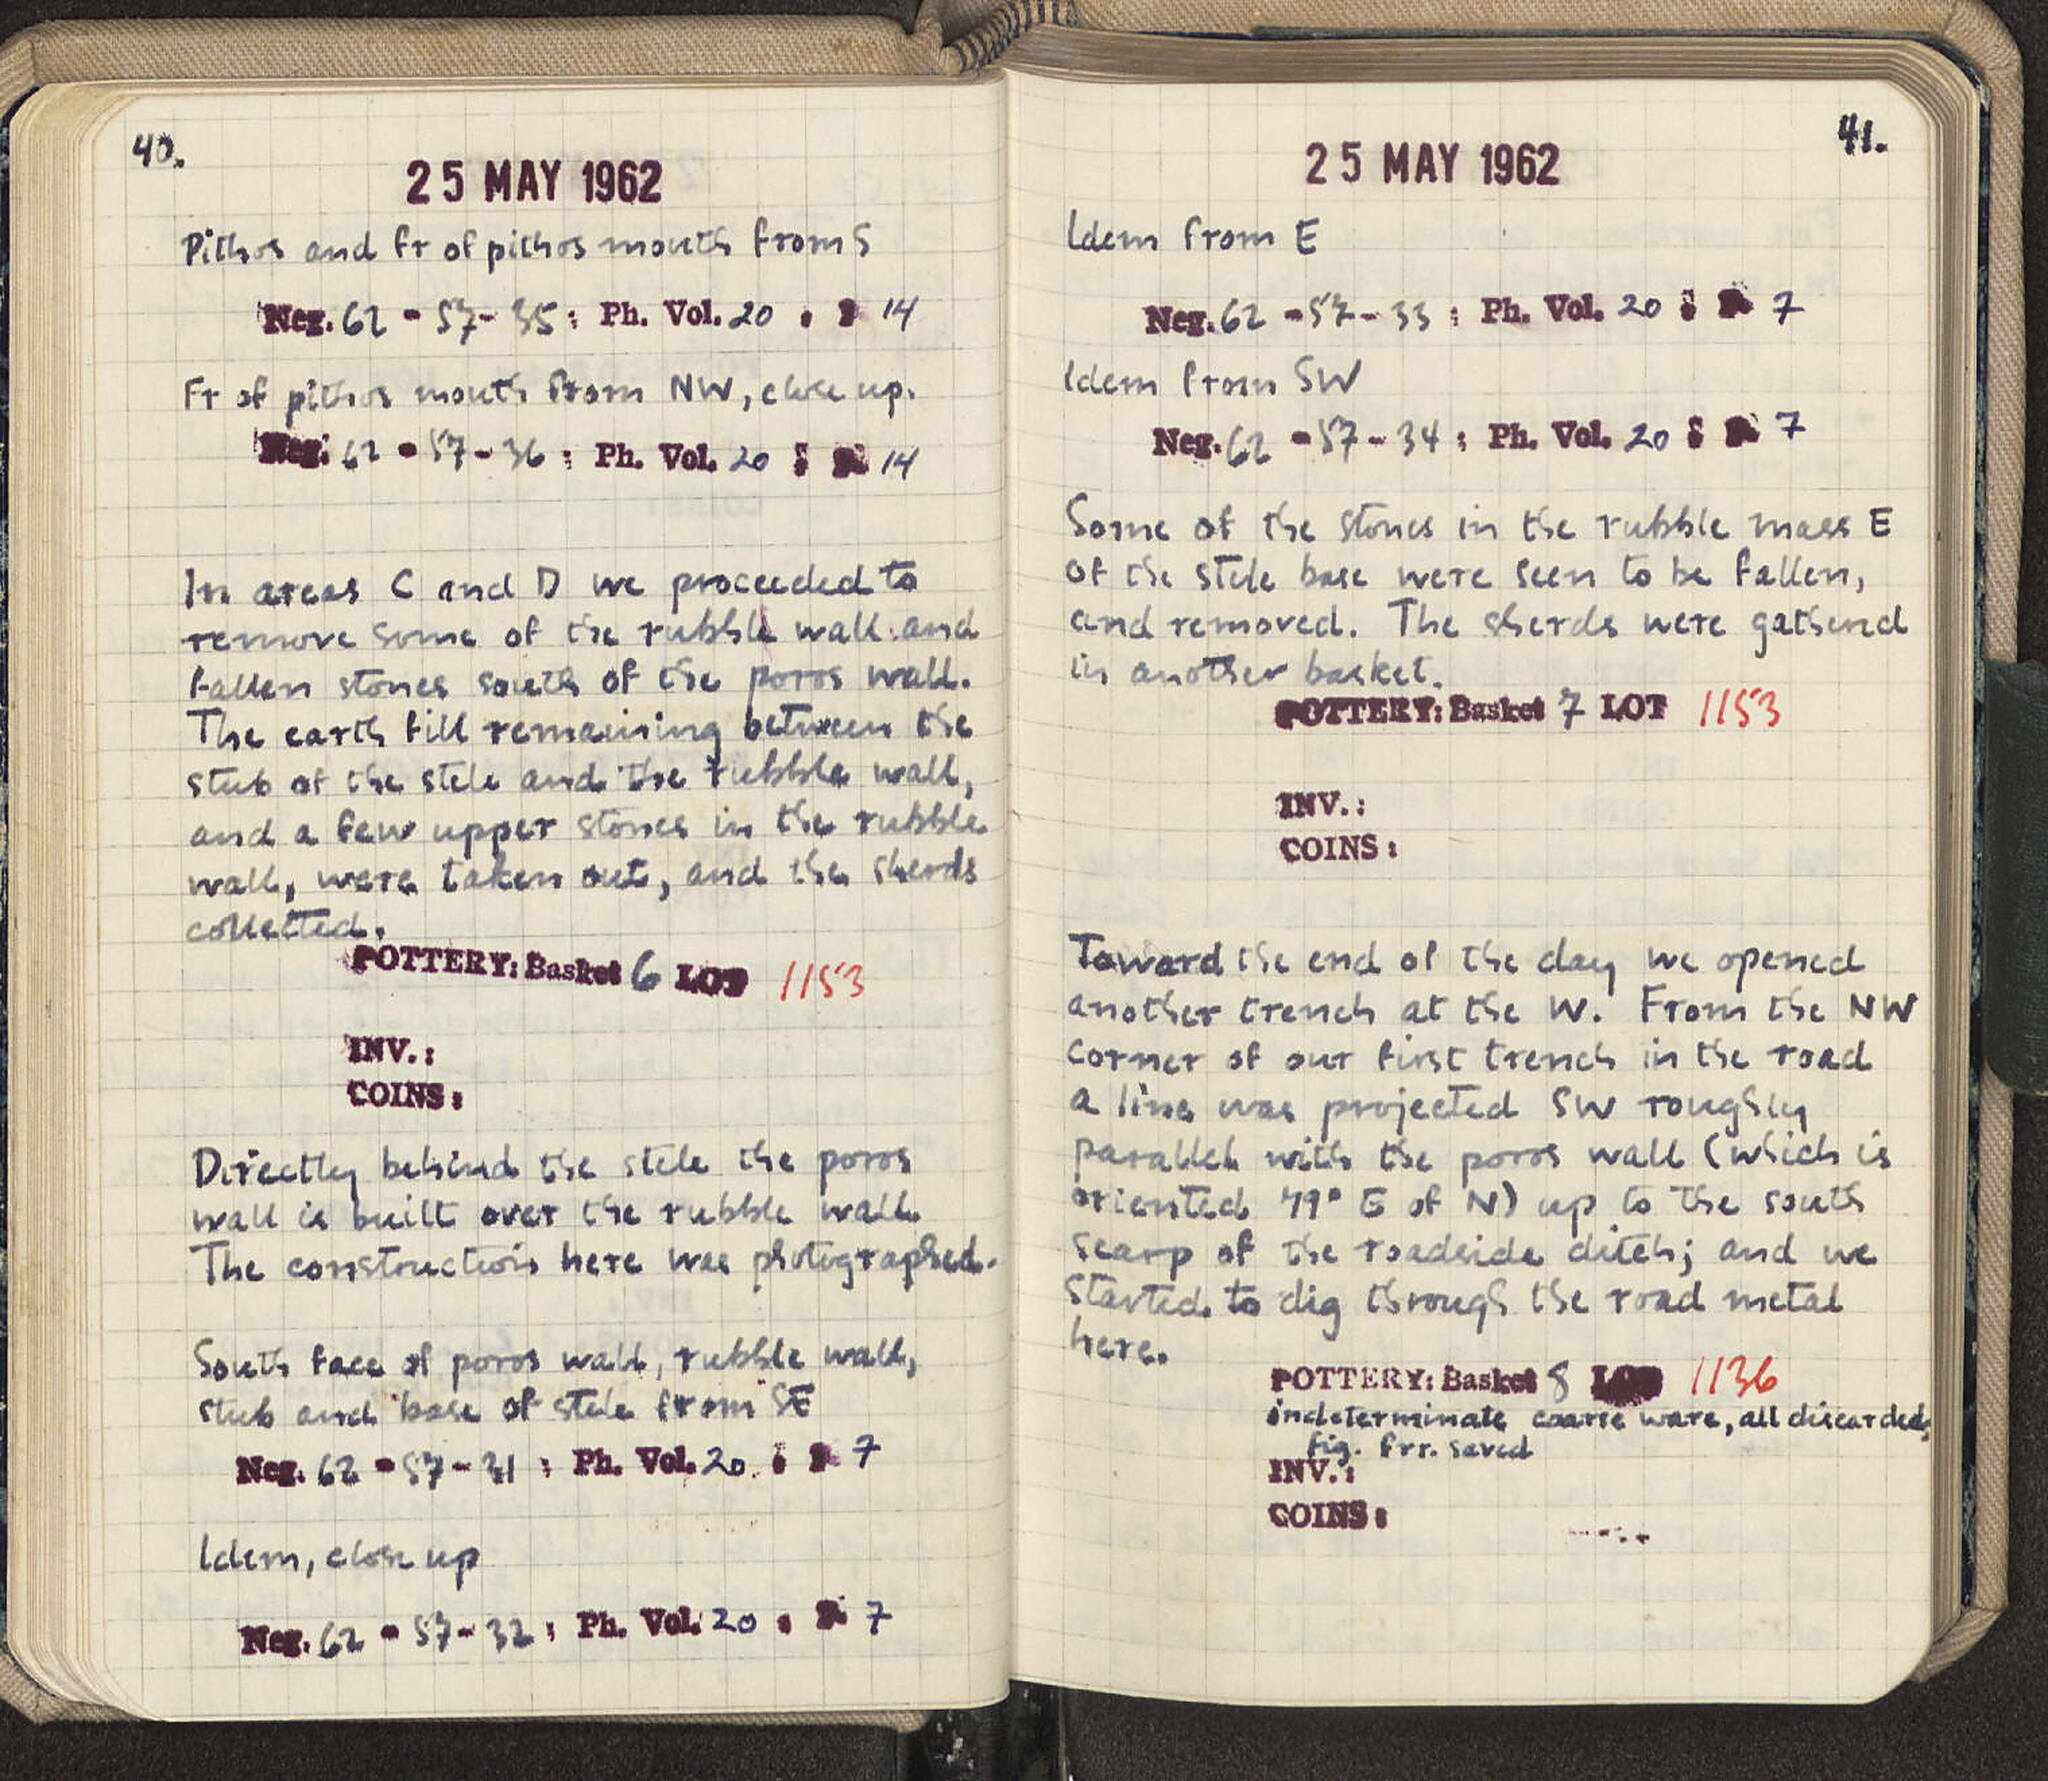 40.
25 MAY 1962
Pithos and fr of pithos mouth from S
Neg. 62 - 57 - 35 ; Ph. Vol. 20 , P 14
Fr of pithos mouth from NW, close up.
Neg. 62 - 57 - 36 ; Ph. Vol. 20 ; P 14
In areas C and D we proceeded to
remove some of the rubble wall and
fallen stones south of the poros wall.
The earth fill remaining between the
stub of the stele and the rubble wall,
and a few upper stones in the rubble
wall, were taken out, and the sherds
collected.
POTTERY: Basket 6 LOT 1153
INV.:
COINS:
Directly behind the stele the poros
wall is built over the rubble wall.
The construction here was photographed.
South face of poros wall, rubble wall,
stub and base of stele from SE
Neg. 62 - 57 - 31 ; Ph. Vol. 20 ; P 7
Idem, close up
Neg. 62 - 57 - 32 ; Ph. Vol. 20 , P 7
41.
25 MAY 1962
Idem from E
Neg. 62 - 57 - 33 ; Ph. Vol. 20 ; P 7
Idem from SW
Neg. 62 - 57 - 34 ; Ph. Vol. 20 ; P 7
Some of the stones in the rubble mass E
of the stele base were seen to be fallen,
and removed. The sherds were gathered
in another basket.
POTTERY: Basket 7 LOT 1153
INV.:
COINS:
Toward the end of the day we opened
another trench at the W. From the NW
corner of our first trench in the road
a line was projected SW roughly
parallel with the poros wall (which is
oriented 79° E of N) up to the south
scarp of the roadside ditch; and we
started to dig through the road metal
here.
POTTERY: Basket 8 LOT 1136
indeterminate coarse ware, all discarded;
fig. frr. saved
INV.:
COINS: